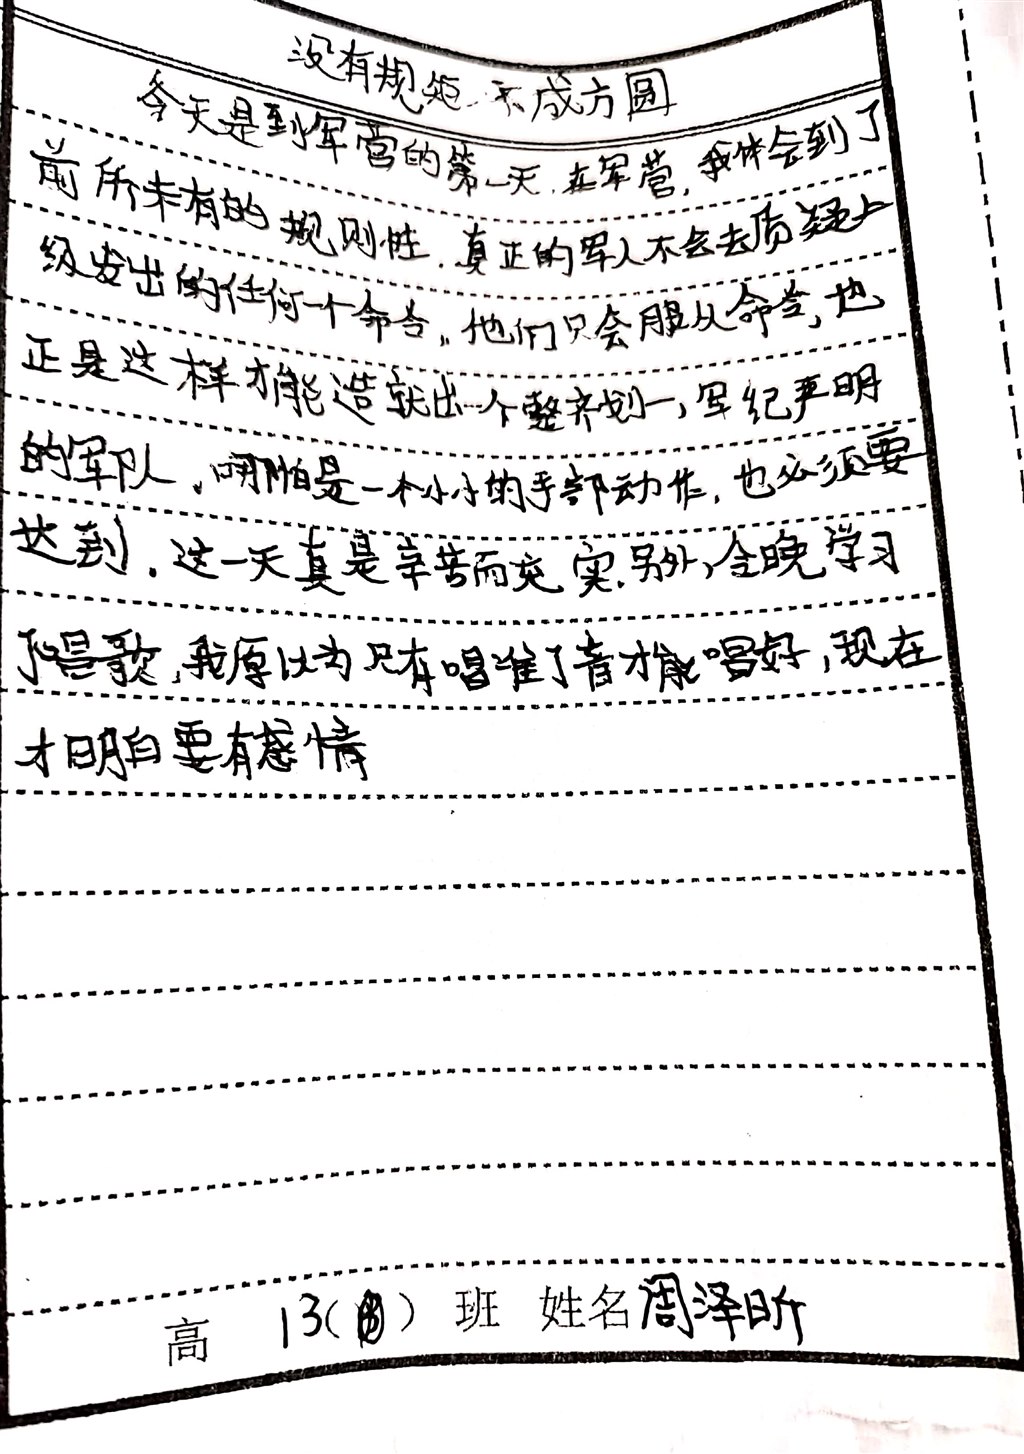 没有规矩不成方圆
今天是到军营的第一天.在军营，我体会到了
前所未有的规则性.真正的军人不会去质疑上
级发出的任何一个命令。他们只会服从命令，也
正是这样才能造就出一个整齐划一，军纪严明
的军队。哪怕是一个小小的手部动作，也必须要
达到。这一天真是辛苦而充实.另外，今晚学习
了唱歌，我原以为只有唱准了音才能唱好，现在
才明白要有感情
高 13( ) 班 姓名周泽昕